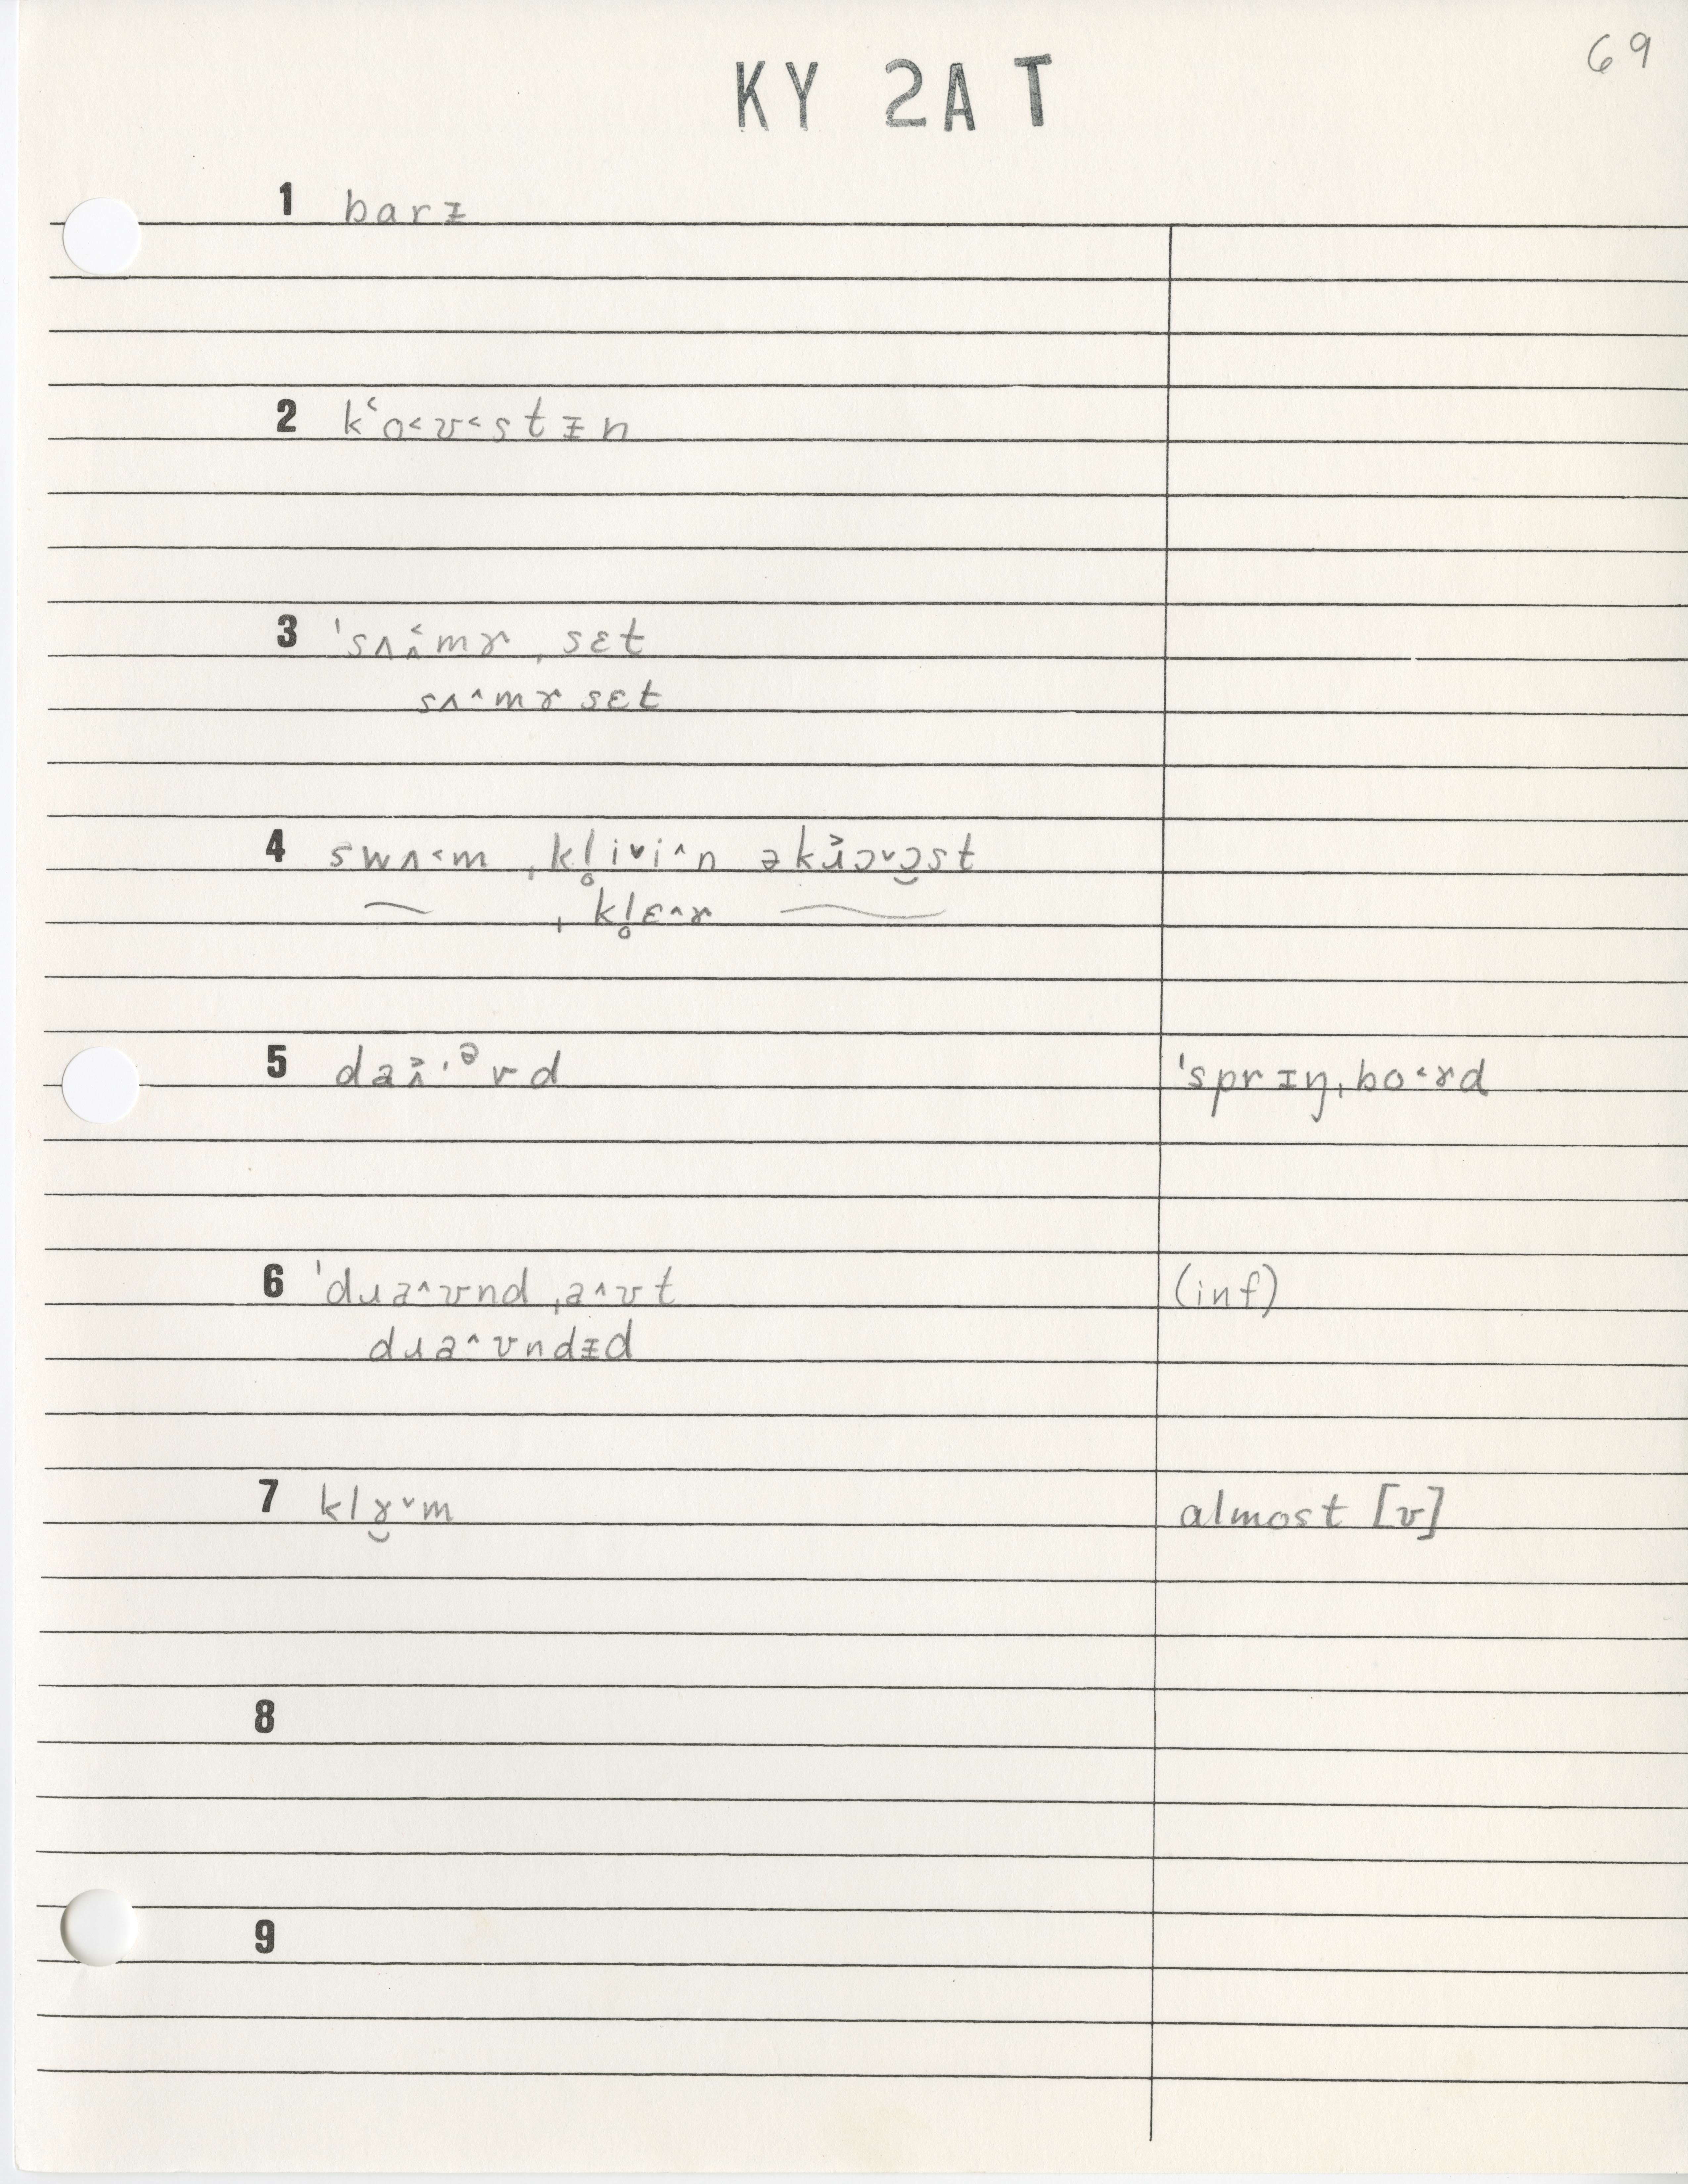 69
KY 2A T
1 barɪ
2 kʻo˂ʊ˂stᵻn
3 ˈsʌ˄˂mɚ ˌsɛt
sʌ˄mɚ sɛt
4 swʌ˂m ˌkl̥i˅i˄n əkɹ˃ɔ˅ɔ̮st
⁓ ˌkl̥ɛ˄ɚ ⁓
5 daɪ˄˃ˈᵊrd ˈsprɪŋˌbo˂ɚd
6 ˈdɹa˄ʊnd ˌa˄ʊt (inf)
dɹa˄ʊndᵻd
7 klɤ̮˅m almost [ʊ]
8
9